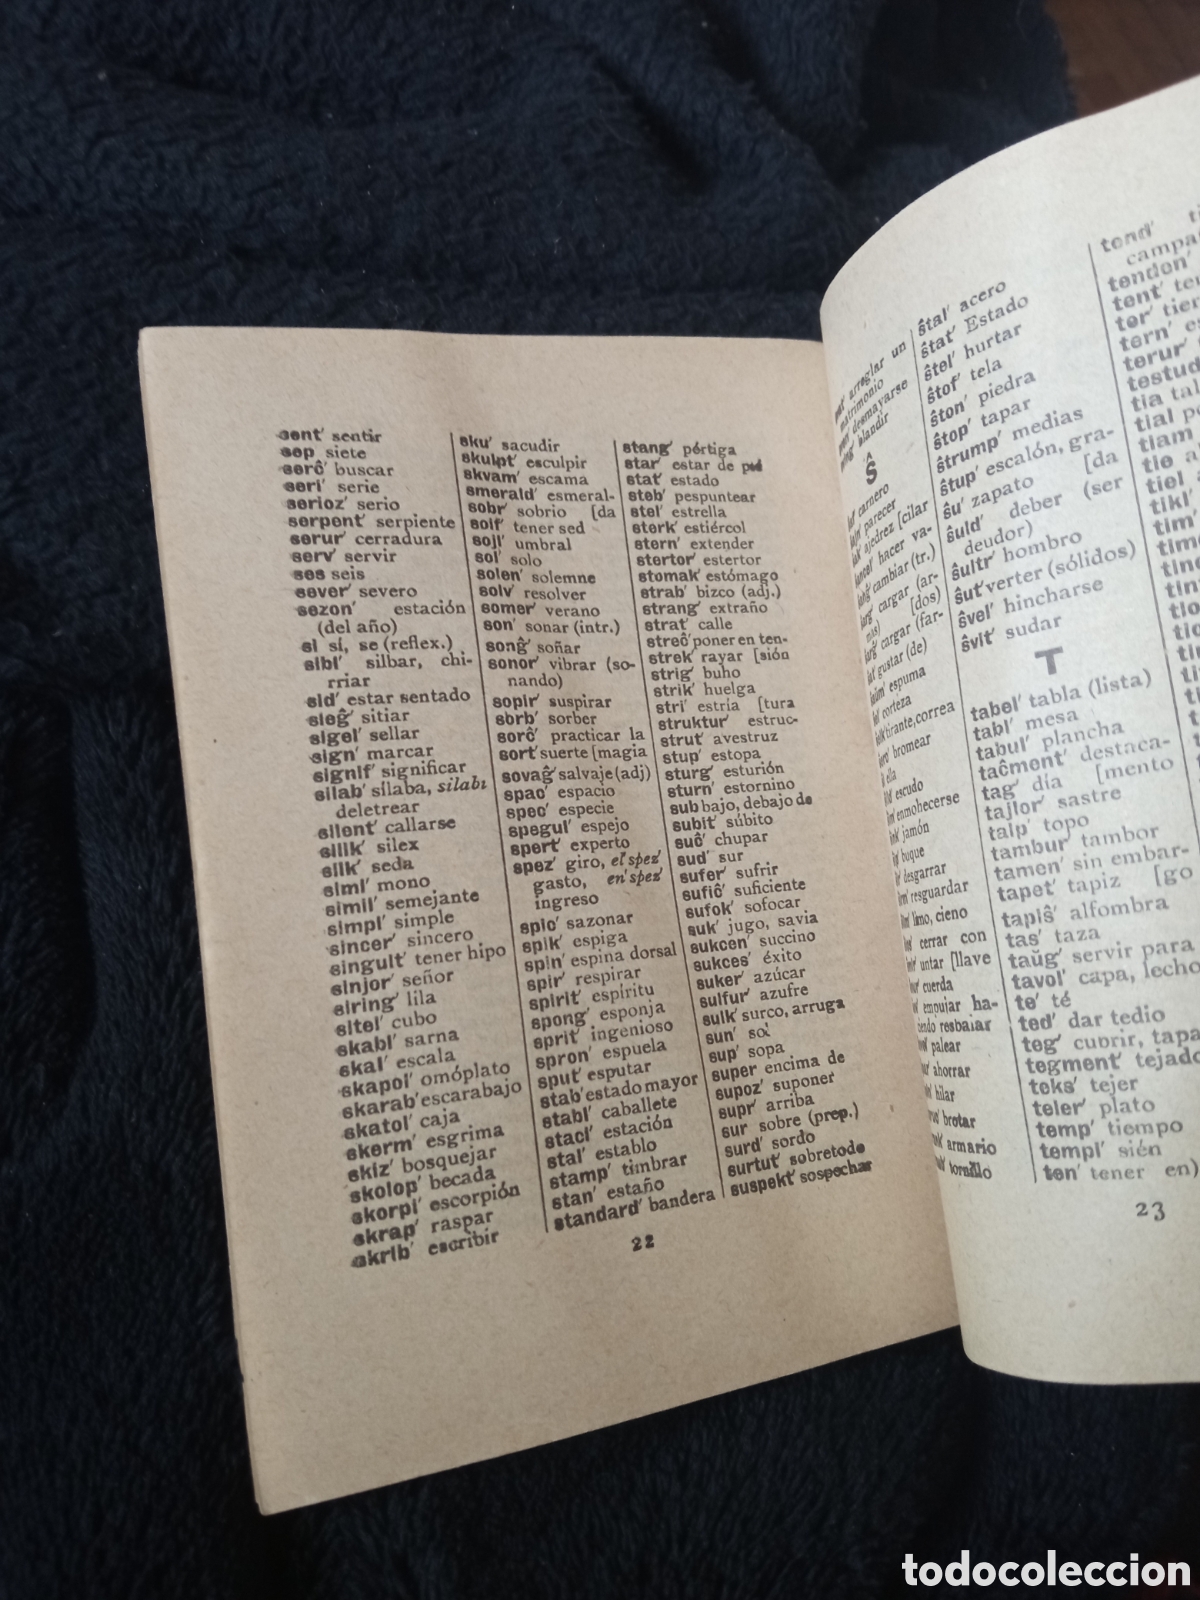 sent' sentir
sep siete
serĉ' buscar
seri' serie
serioz' serio
serpent' serpiente
serur' cerradura
serv' servir
ses seis
sever' severo
sezon' estación
(del año)
si sí, se (reflex.)
sibl' silbar, chi-
rriar
sid' estar sentado
sieĝ' sitiar
sigel' sellar
sign' marcar
signif' significar
silab' sílaba, silabi
deletrear
silent' callarse
silik' silex
silk' seda
simi' mono
simil' semejante
simpl' simple
sincer' sincero
singult' tener hipo
sinjor' señor
siring' lila
sitel' cubo
skabi' sarna
skal' escala
skapol' omóplato
skarab' escarabajo
skatol' caja
skerm' esgrima
skiz' bosquejar
skolop' becada
skorpi' escorpión
skrap' raspar
skrib' escribir
sku' sacudir
skulpt' esculpir
skvam' escama
smerald' esmeral-
sobr' sobrio [da
soif' tener sed
sojl' umbral
sol' solo
solen' solemne
solv' resolver
somer' verano
son' sonar (intr.)
sonĝ' soñar
sonor' vibrar (so-
nando)
sopir' suspirar
sorb' sorber
sorĉ' practicar la
sort' suerte [magia
sovaĝ' salvaje (adj)
spac' espacio
spec' especie
spegul' espejo
spert' experto
spez' giro, el'spez'
gasto, en'spez'
ingreso
spic' sazonar
spik' espiga
spin' espina dorsal
spir' respirar
spirit' espíritu
spong' esponja
sprit' ingenioso
spron' espuela
sput' esputar
stab' estado mayor
stabl' caballete
staci' estación
stal' establo
stamp' timbrar
stan' estaño
standard' bandera
stang' pértiga
star' estar de pié
stat' estado
steb' pespuntear
stel' estrella
sterk' estiércol
stern' extender
stertor' estertor
stomak' estómago
strab' bizco (adj.)
strang' extraño
strat' calle
streĉ' poner en ten-
strek' rayar [sión
strig' buho
strik' huelga
stri' estria [tura
struktur' estruc-
strut' avestruz
stup' estopa
sturg' esturión
sturn' estornino
sub bajo, debajo de
subit' súbito
suĉ' chupar
sud' sur
sufer' sufrir
sufiĉ' suficiente
sufok' sofocar
suk' jugo, savia
sukcen' succino
sukces' éxito
suker' azúcar
sulfur' azufre
sulk' surco, arruga
sun' sol
sup' sopa
super encima de
supoz' suponer
supr' arriba
sur sobre (prep.)
surd' sordo
surtut' sobretodo
suspekt' sospechar
22
arreglar un
matrimonio
desmayarse
blandir
Ŝ
carnero
parecer
ajedrez [cilar
hacer va-
cambiar (tr.)
cargar (ar-
mas) [dos)
cargar (far-
gustar (de)
espuma
corteza
tirante, correa
bromear
ella
escudo
enmohecerse
jamón
buque
desgarrar
resguardar
limo, cieno
cerrar con
untar [llave
cuerda
empujar ha-
ciendo resbalar
palear
ahorrar
hilar
brotar
armario
tornillo
ŝtal' acero
ŝtat' Estado
ŝtel' hurtar
ŝtof' tela
ŝton' piedra
ŝtop' tapar
ŝtrump' medias
ŝtup' escalón, gra-
ŝu' zapato [da
ŝuld' deber (ser
deudor)
ŝultr' hombro
ŝut' verter (sólidos)
ŝvel' hincharse
ŝvit' sudar
T
tabel' tabla (lista)
tabl' mesa
tabul' plancha
taĉment' destaca-
tag' día [mento
tajlor' sastre
talp' topo
tambur' tambor
tamen' sin embar-
tapet' tapiz [go
tapiŝ' alfombra
tas' taza
taŭg' servir para
tavol' capa, lecho
te' té
ted' dar tedio
teg' cubrir, tapa
tegment' tejado
teks' tejer
teler' plato
temp' tiempo
templ' sién
ten' tener en)
tend'
campa
tenden'
tent' te
ter' tier
tern' e
terur'
testud
tia ta
tial p
tiam
tie a
tiel
tikl'
tim'
23
todocoleccion